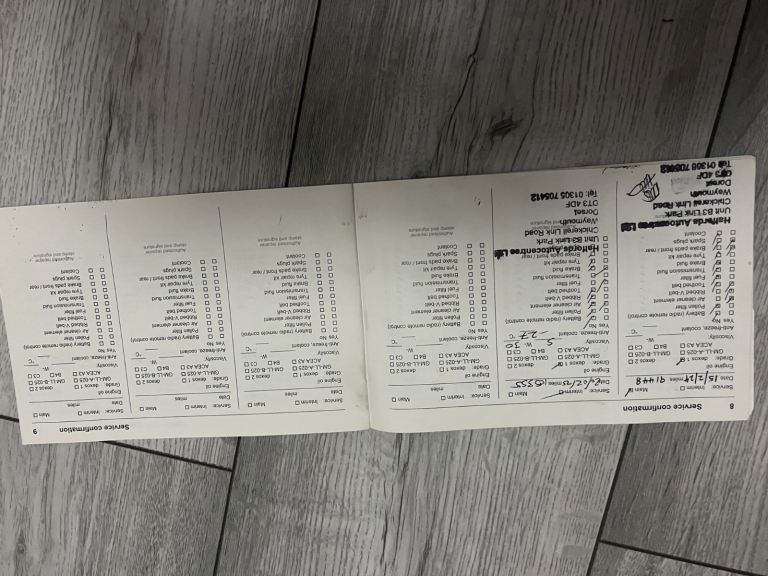 8
Service confirmation
Service: Interim Main
Date 15/2/18 miles 91448
Engine oil
Grade: dexos 1 dexos 2
GM-LL-A-025 GM-LL-B-025
ACEA A3 B4 C3
Viscosity:
Anti-freeze, coolant
Yes No
Battery (radio remote control)
Pollen filter
Air cleaner element
Ribbed V-belt
Toothed belt
Fuel filter
Transmission fluid
Brake fluid
Tyre repair kit
Brake pads front / rear
Spark plugs
Coolant
Halfords Autocentres Ltd
Unit B3 Link Park
Chickerell Link Road
Weymouth
Dorset
DT3 4DF
Tel: 01305 705412
Service: Interim Main
Date miles
Engine oil
Grade: dexos 1 dexos 2
GM-LL-A-025 GM-LL-B-025
ACEA A3 B4 C3
Viscosity: 5 W- 30
Anti-freeze, coolant -27 °C
Yes No
Battery (radio remote control)
Pollen filter
Air cleaner element
Ribbed V-belt
Toothed belt
Fuel filter
Transmission fluid
Brake fluid
Tyre repair kit
Brake pads front / rear
Halfords Autocentres Ltd
Unit B3 Link Park
Chickerell Link Road
Weymouth
Dorset
DT3 4DF
Tel: 01305 705412
Service: Interim Main
Date miles
Engine oil
Grade: dexos 1 dexos 2
GM-LL-A-025 GM-LL-B-025
ACEA A3 B4 C3
Viscosity: W-
Anti-freeze, coolant °C
Yes No
Battery (radio remote control)
Pollen filter
Air cleaner element
Ribbed V-belt
Toothed belt
Fuel filter
Transmission fluid
Brake fluid
Tyre repair kit
Brake pads front / rear
Spark plugs
Coolant
Authorised repairer
stamp and signature
Service confirmation
9
Service: Interim Main
Date miles
Engine oil
Grade: dexos 1 dexos 2
GM-LL-A-025 GM-LL-B-025
ACEA A3 B4 C3
Viscosity: W-
Anti-freeze, coolant °C
Yes No
Battery (radio remote control)
Pollen filter
Air cleaner element
Ribbed V-belt
Toothed belt
Fuel filter
Transmission fluid
Brake fluid
Tyre repair kit
Brake pads front / rear
Spark plugs
Coolant
Authorised repairer
stamp and signature
Service: Interim Main
Date miles
Engine oil
Grade: dexos 1 dexos 2
GM-LL-A-025 GM-LL-B-025
ACEA A3 B4 C3
Viscosity: W-
Anti-freeze, coolant °C
Yes No
Battery (radio remote control)
Pollen filter
Air cleaner element
Ribbed V-belt
Toothed belt
Fuel filter
Transmission fluid
Brake fluid
Tyre repair kit
Brake pads front / rear
Spark plugs
Coolant
Authorised repairer
stamp and signature
Service: Interim Main
Date miles
Engine oil
Grade: dexos 1 dexos 2
GM-LL-A-025 GM-LL-B-025
ACEA A3 B4 C3
Viscosity: W-
Anti-freeze, coolant °C
Yes No
Battery (radio remote control)
Pollen filter
Air cleaner element
Ribbed V-belt
Toothed belt
Fuel filter
Transmission fluid
Brake fluid
Tyre repair kit
Brake pads front / rear
Spark plugs
Coolant
Authorised repairer
stamp and signature